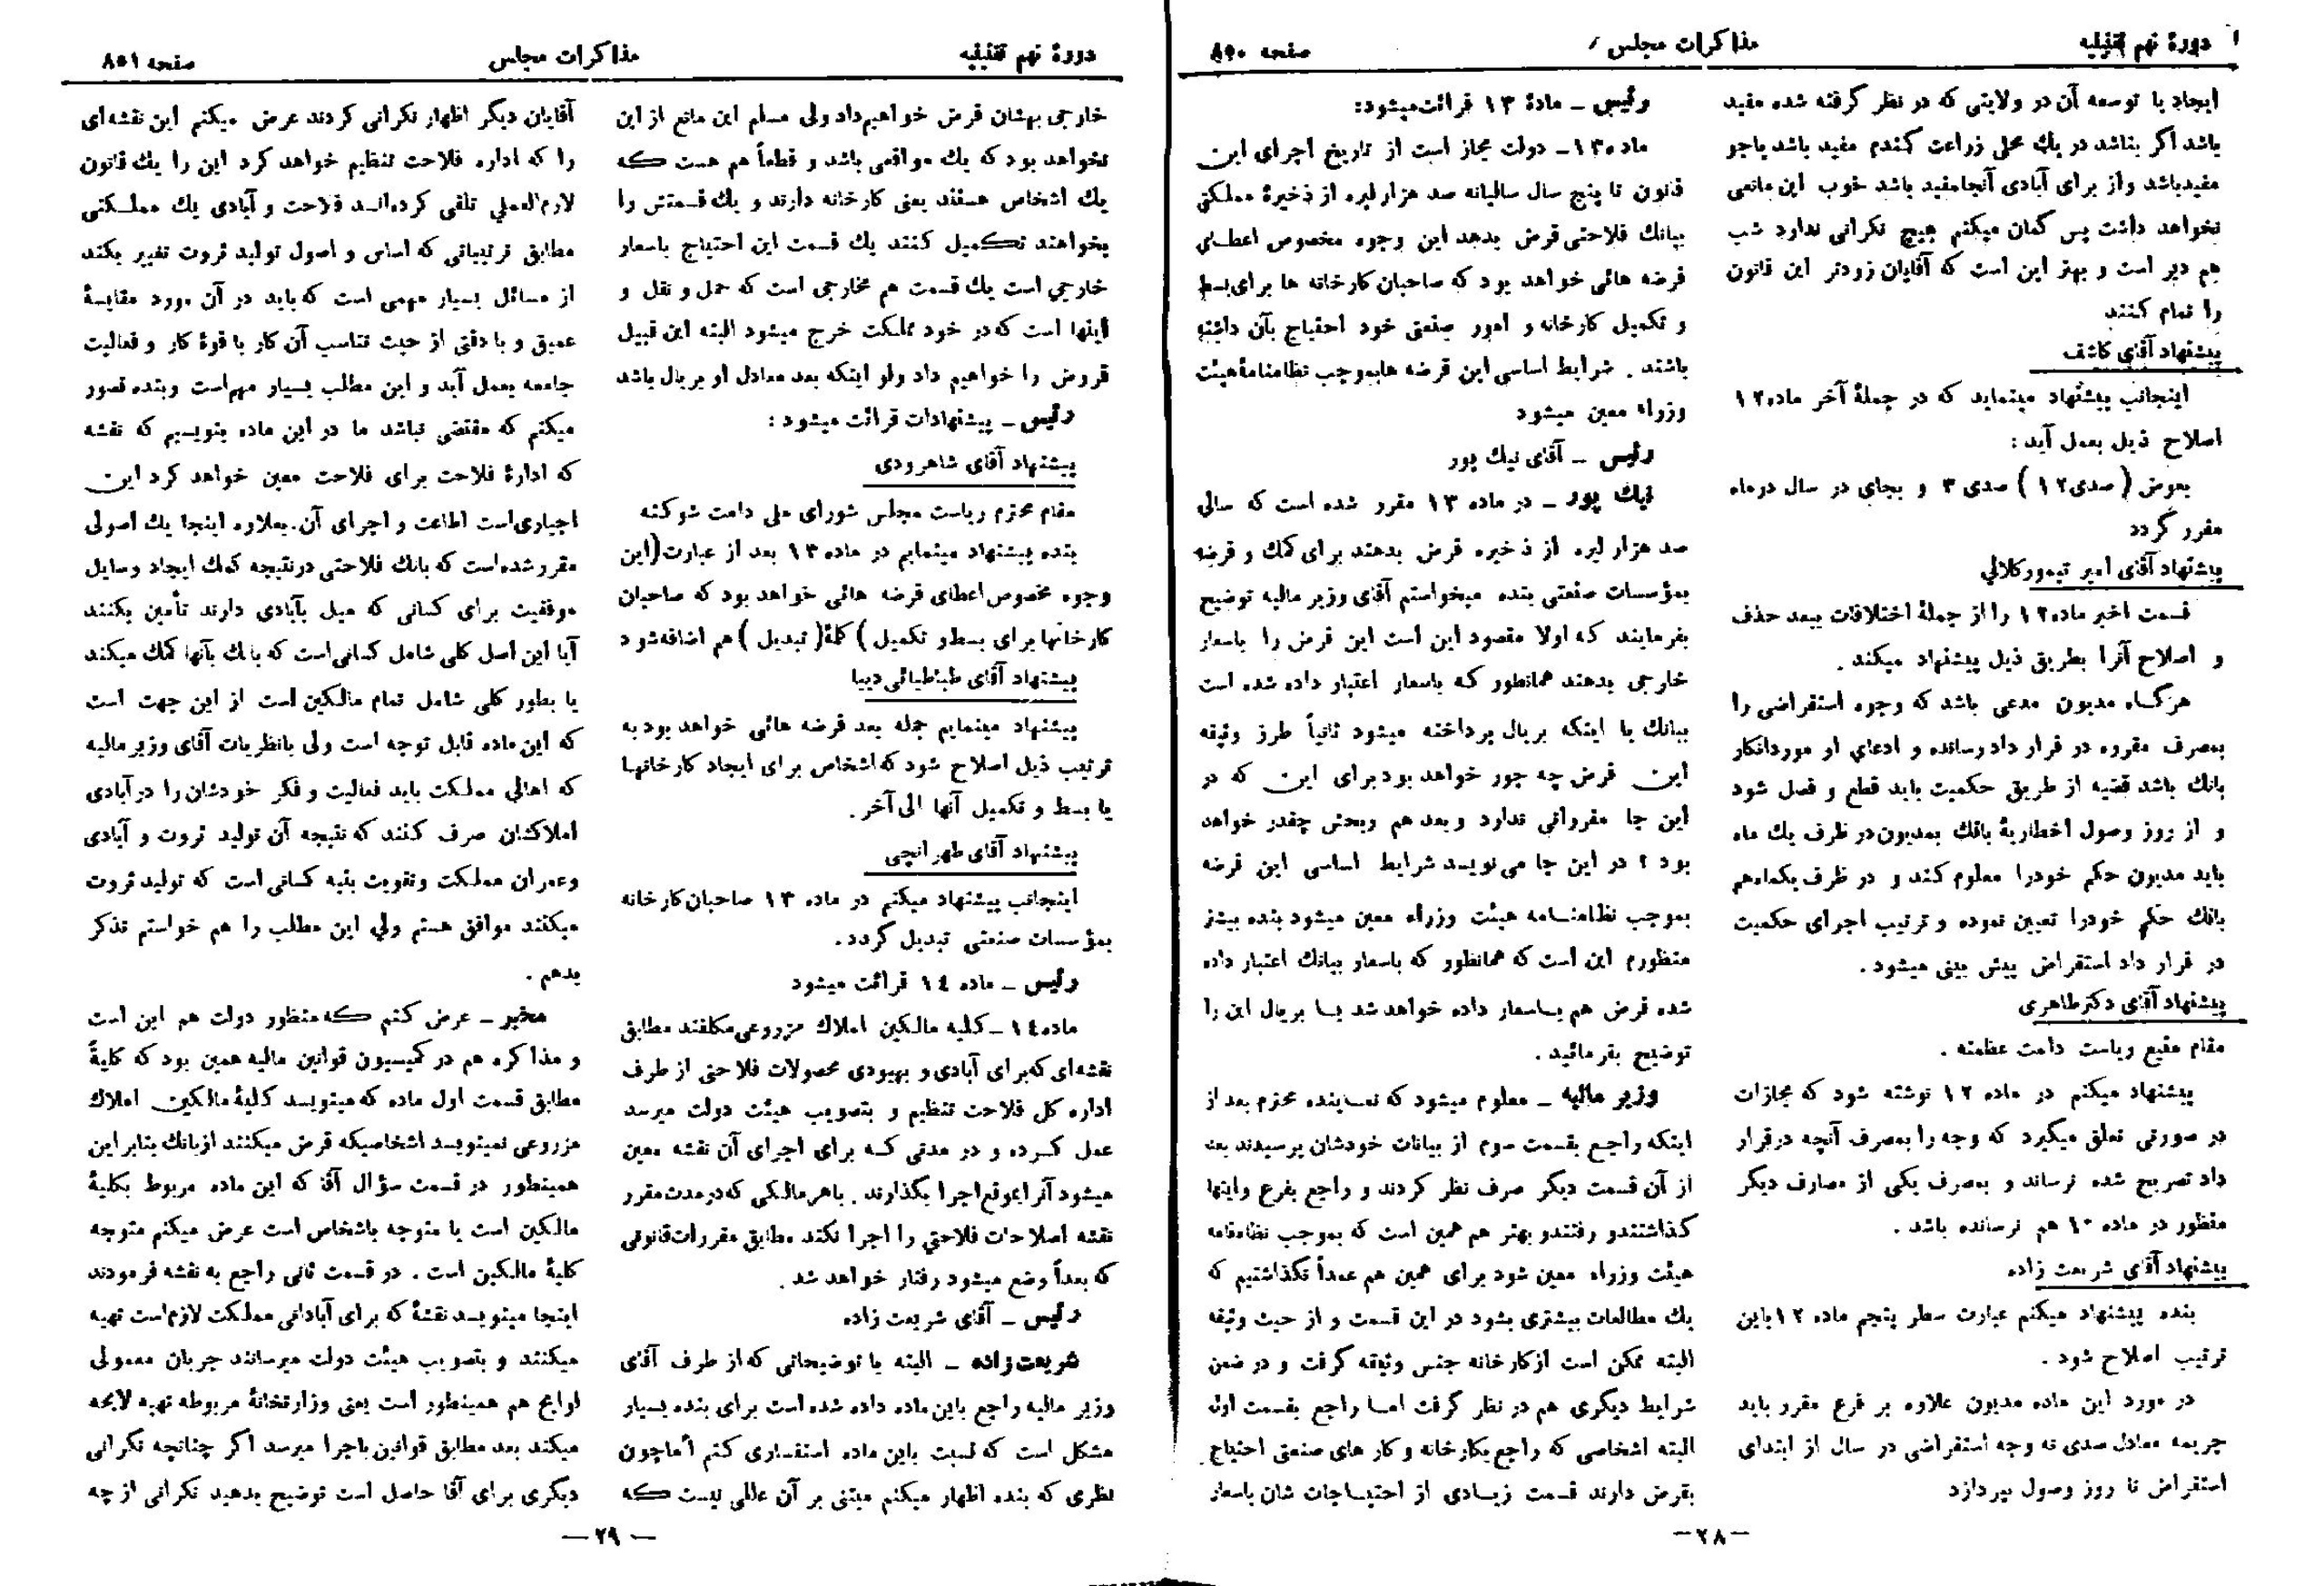 دورهٔ نهم تقنینیه
مذاکرات مجلس
صفحه ۸۵۰
ایجاد یا توسعه آن در ولایتی که در نظر گرفته شده مفید
باشد اگر بناشد در یك محلی زراعت گندم مفید باشد یا جو
مفیدباشد و از برای آبادی آنجا مفید باشد خوب این مانعی
نخواهد داشت پس گمان میکنم هیچ نگرانی ندارد شب
هم دیر است و بهتر این است که آقایان زودتر این قانون
را تمام کنند
پیشنهاد آقای کاشف
اینجانب پیشنهاد مینماید که در جملهٔ آخر ماده ۱۲
اصلاح ذیل بعمل آید:
بعوض (صدی ۱۲) صدی ۳ و بجای در سال در ماه
مقرر گردد
پیشنهاد آقای امیر تیمور کلالی
قسمت اخیر ماده ۱۲ را از جملهٔ اختلافات ببعد حذف
و اصلاح آنرا بطریق ذیل پیشنهاد میکند.
هرگاه مدیون مدعی باشد که وجوه استقراضی را
بمصرف مقرره در قرار داد رسانده و ادعای او مورد انکار
بانك باشد قضیه از طریق حکمیت باید قطع و فصل شود
و از روز وصول اخطاریهٔ بانك بمدیون در ظرف یك ماه
باید مدیون حکم خودرا معلوم کند و در ظرف یکماه هم
بانك حکم خودرا تعیین نموده و ترتیب اجرای حکمیت
در قرار داد استقراض پیش بینی میشود.
پیشنهاد آقای دکتر طاهری
مقام منیع ریاست دامت عظمته.
پیشنهاد میکنم در ماده ۱۲ نوشته شود که مجازات
در صورتی تعلق میگیرد که وجه را بمصرف آنچه در قرار
داد تصریح شده نرساند و بمصرف یکی از مصارف دیگر
منظور در ماده ۱۰ هم نرسانده باشد.
پیشنهاد آقای شریعت زاده
بنده پیشنهاد میکنم عبارت سطر پنجم ماده ۱۲ باین
ترتیب اصلاح شود.
در مورد این ماده مدیون علاوه بر فرع مقرر باید
جریمه معادل صدی نه وجه استقراضی در سال از ابتدای
استقراض تا روز وصول بپردازد
رئیس ـ مادهٔ ۱۳ قرائت میشود:
ماده ۱۳ـ دولت مجاز است از تاریخ اجرای این
قانون تا پنج سال سالیانه صد هزار لیره از ذخیرهٔ مملکتی
ببانك فلاحتی قرض بدهد این وجوه مخصوص اعطای
قرضه هائی خواهد بود که صاحبان کارخانه ها برای بسط
و تکمیل کارخانه و امور صنعتی خود احتیاج بآن داشته
باشند. شرایط اساسی این قرضه ها بموجب نظامنامهٔ هیئت
وزراء معین میشود
رئیس ـ آقای نیك پور
نیك پور ـ در ماده ۱۳ مقرر شده است که سالی
صد هزار لیره از ذخیره قرض بدهند برای کمك و قرضه
بمؤسسات صنعتی بنده میخواستم آقای وزیر مالیه توضیح
بفرمایند که اولا مقصود این است این قرض را باسعار
خارجی بدهند همانطور که باسعار اعتبار داده شده است
ببانك یا اینکه بریال پرداخته میشود ثانیاً طرز وثیقه
این قرض چه جور خواهد بود برای این که در
این جا مقرراتی ندارد و بعد هم ربحش چقدر خواهد
بود ؟ در این جا می نویسد شرایط اساسی این قرضه
بموجب نظامنامه هیئت وزراء معین میشود بنده بیشتر
منظورم این است که همانطور که باسعار ببانك اعتبار داده
شده قرض هم باسعار داده خواهد شد یا بریال این را
توضیح بفرمائید.
وزیر مالیه ـ معلوم میشود که نماینده محترم بعد از
اینکه راجع بقسمت سوم از بیانات خودشان پرسیدند بعد
از آن قسمت دیگر صرف نظر کردند و راجع بفرع و اینها
گذاشتند و رفتند و بهتر هم همین است که بموجب نظامنامه
هیئت وزراء معین شود برای همین هم عمداً نگذاشتیم که
یك مطالعات بیشتری بشود در این قسمت و از حیث وثیقه
البته ممکن است از کارخانه جنس وثیقه گرفت و در ضمن
شرایط دیگری هم در نظر گرفت اما راجع بقسمت اول
البته اشخاصی که راجع بکارخانه و کار های صنعتی احتیاج
بقرض دارند قسمت زیادی از احتیاجات شان باسعار
ـ ۲۸ ـ
دورهٔ نهم تقنینیه
مذاکرات مجلس
صفحه ۸۵۱
خارجی بهشان قرض خواهیم داد ولی مسلم این مانع از این
نخواهد بود که یك مواقعی باشد و قطعاً هم هست که
یك اشخاص هستند یعنی کارخانه دارند و یك قسمتش را
بخواهند تکمیل کنند یك قسمت این احتیاج باسعار
خارجی است یك قسمت هم مخارجی است که حمل و نقل و
اینها است که در خود مملکت خرج میشود البته این قبیل
قروض را خواهیم داد ولو اینکه بعد معادل او بریال باشد
رئیس ـ پیشنهادات قرائت میشود:
پیشنهاد آقای شاهرودی
مقام محترم ریاست مجلس شورای ملی دامت شوکته
بنده پیشنهاد مینمایم در ماده ۱۳ بعد از عبارت (این
وجوه مخصوص اعطای قرضه هائی خواهد بود که صاحبان
کارخانها برای بسط و تکمیل) کلمهٔ (تبدیل) هم اضافه شود
پیشنهاد آقای طباطبائی دیبا
پیشنهاد مینمایم جمله بعد قرضه هائی خواهد بود به
ترتیب ذیل اصلاح شود که اشخاص برای ایجاد کارخانها
یا بسط و تکمیل آنها الی آخر.
پیشنهاد آقای طهرانچی
اینجانب پیشنهاد میکنم در ماده ۱۳ صاحبان کارخانه
بمؤسسات صنعتی تبدیل گردد.
رئیس ـ ماده ۱۴ قرائت میشود
ماده ۱۴ ـ کلیه مالکین املاك مزروعی مکلفند مطابق
نقشه‌ای که برای آبادی و بهبودی محصولات فلاحتی از طرف
اداره کل فلاحت تنظیم و بتصویب هیئت دولت میرسد
عمل کرده و در مدتی که برای اجرای آن نقشه معین
میشود آنرا بموقع اجرا بگذارند. با هر مالکی که در مدت مقرر
نقشه اصلاحات فلاحتی را اجرا نکند مطابق مقررات قانونی
که بعداً وضع میشود رفتار خواهد شد.
رئیس ـ آقای شریعت زاده
شریعت زاده ـ البته با توضیحاتی که از طرف آقای
وزیر مالیه راجع باین ماده داده شده است برای بنده بسیار
مشکل است که نسبت باین ماده استفساری کنم اما چون
نظری که بنده اظهار میکنم مبتنی بر آن عللی نیست که
آقایان دیگر اظهار نگرانی کردند عرض میکنم این نقشه‌ای
را که اداره فلاحت تنظیم خواهد کرد این را یك قانون
لازم العملی تلقی کرده‌اند فلاحت و آبادی یك مملکتی
مطابق ترتیباتی که اساس و اصول تولید ثروت تغییر بکند
از مسائل بسیار مهمی است که باید در آن مورد مقایسهٔ
عمیق و با دقتی از حیث تناسب آن کار با قوهٔ کار و فعالیت
جامعه بعمل آید و این مطلب بسیار مهم است و بنده تصور
میکنم که مقتضی نباشد ما در این ماده بنویسیم که نقشه
که ادارهٔ فلاحت برای فلاحت معین خواهد کرد این
اجباری است اطاعت و اجرای آن. بعلاوه اینجا یك اصولی
مقرر شده است که بانك فلاحتی در نتیجه کمك ایجاد وسایل
موفقیت برای کسانی که میل بآبادی دارند تأمین بکنند
آیا این اصل کلی شامل کسانی است که بانك بآنها کمك میکند
یا بطور کلی شامل تمام مالکین است از این جهت است
که این ماده قابل توجه است ولی با نظریات آقای وزیر مالیه
که اهالی مملکت باید فعالیت و فکر خودشان را در آبادی
املاکشان صرف کنند که نتیجه آن تولید ثروت و آبادی
و عمران مملکت و تقویت بنیه کسانی است که تولید ثروت
میکنند موافق هستم ولی این مطلب را هم خواستم تذکر
بدهم.
مخبر ـ عرض کنم که منظور دولت هم این است
و مذاکره هم در کمیسیون قوانین مالیه همین بود که کلیهٔ
مطابق قسمت اول ماده که مینویسد کلیهٔ مالکین املاك
مزروعی نمینویسد اشخاصیکه قرض میکنند از بانك بنابر این
همینطور در قسمت سؤال آقا که این ماده مربوط بکلیهٔ
مالکین است یا متوجه باشخاص است عرض میکنم متوجه
کلیهٔ مالکین است. در قسمت ثانی راجع به نقشه فرمودند
اینجا مینویسد نقشهٔ که برای آبادانی مملکت لازم است تهیه
میکنند و بتصویب هیئت دولت میرسانند جریان معمولی
لوایح هم همینطور است یعنی وزارتخانهٔ مربوطه تهیه لایحه
میکند بعد مطابق قوانین باجرا میرسد اگر چنانچه نگرانی
دیگری برای آقا حاصل است توضیح بدهید نگرانی از چه
ـ ۲۹ ـ